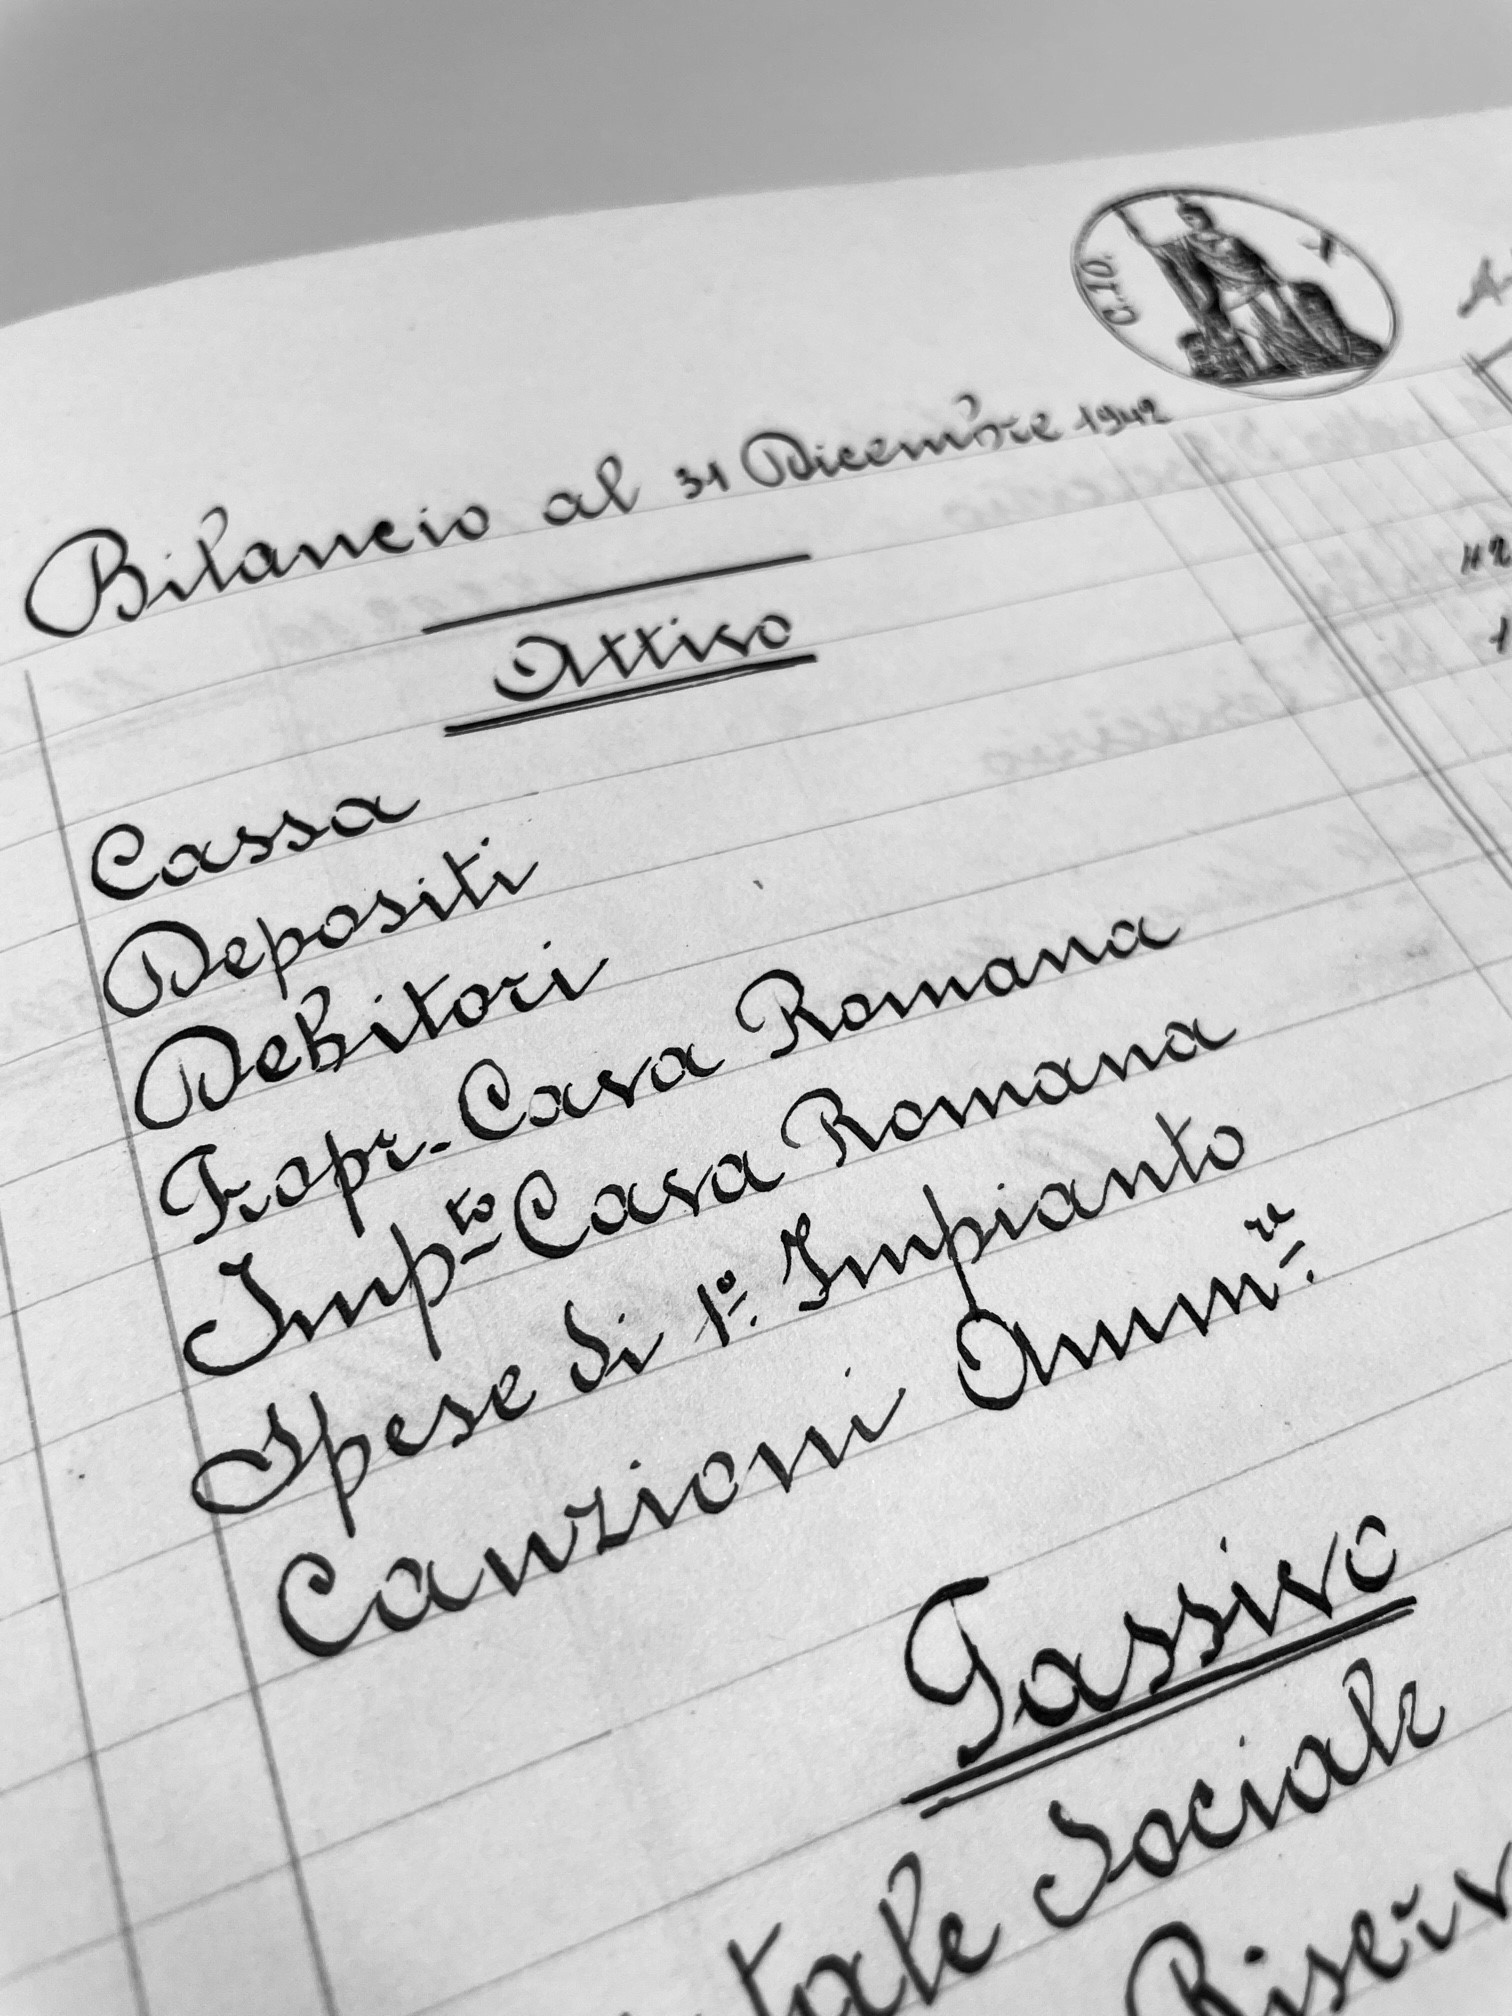 C. 10.
Bilancio al 31 Dicembre 1942
Attivo
Cassa
Depositi
Debitori
Propr. Casa Romana
Imp.to Casa Romana
Spese di 1º. Impianto
Cauzioni Amm.re
Passivo
Sociale